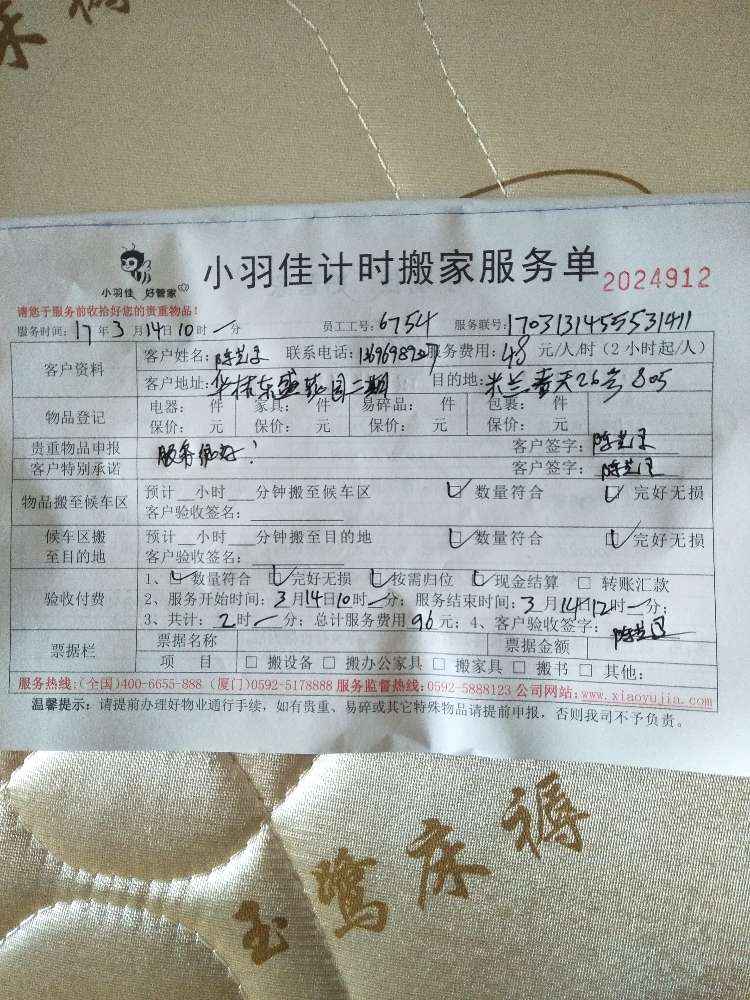 床褥
小羽佳 好管家
小羽佳计时搬家服务单 2024912
请您于服务前收拾好您的贵重物品！
服务时间：17年3月14日10时一分 员工工号：6754 服务联号：1703131455531411
客户资料
客户姓名：陈 联系电话： 服务费用：48元/人/时（2小时起/人）
客户地址：华林东盛花园二期 目的地：米兰春天26号805
物品登记
电器： 件 家具： 件 易碎品： 件 包裹： 件
保价： 元 保价： 元 保价： 元 保价： 元
贵重物品申报 客户签字：陈
客户特别承诺 服务很好！ 客户签字：陈
物品搬至候车区
预计__小时__分钟搬至候车区 ☑数量符合 ☑完好无损
客户验收签名：
候车区搬至目的地
预计__小时__分钟搬至目的地 ☑数量符合 ☑完好无损
客户验收签名：
验收付费
1、☑数量符合 ☑完好无损 ☑按需归位 ☑现金结算 □转账汇款
2、服务开始时间：3月14日10时一分；服务结束时间：3月14日12时一分；
3、共计：2时一分；总计服务费用96元；4、客户验收签字：陈
票据栏
票据名称 票据金额
项 目 □搬设备 □搬办公家具 □搬家具 □搬书 □其他：
服务热线：（全国）400-6655-888（厦门）0592-5178888 服务监督热线：0592-5888123 公司网站：www.xiaoyujia.com
温馨提示：请提前办理好物业通行手续，如有贵重、易碎或其它特殊物品请提前申报，否则我司不予负责。
玉鹭床褥